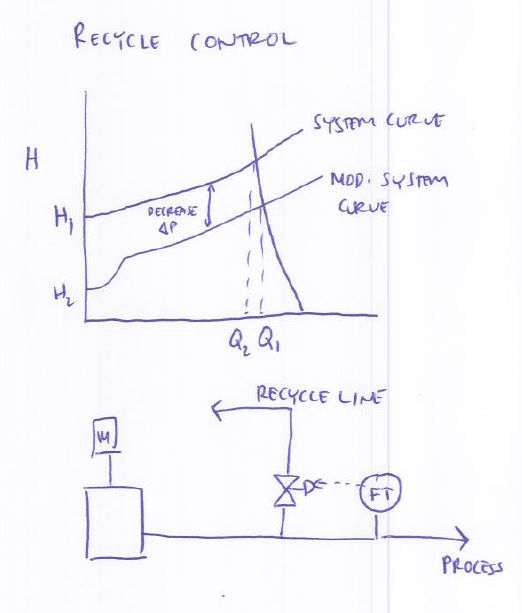 RECYCLE CONTROL
SYSTEM CURVE
H
MOD. SYSTEM
CURVE
H1
DECREASE
ΔP
H2
Q2 Q1
RECYCLE LINE
M
FT
PROCESS